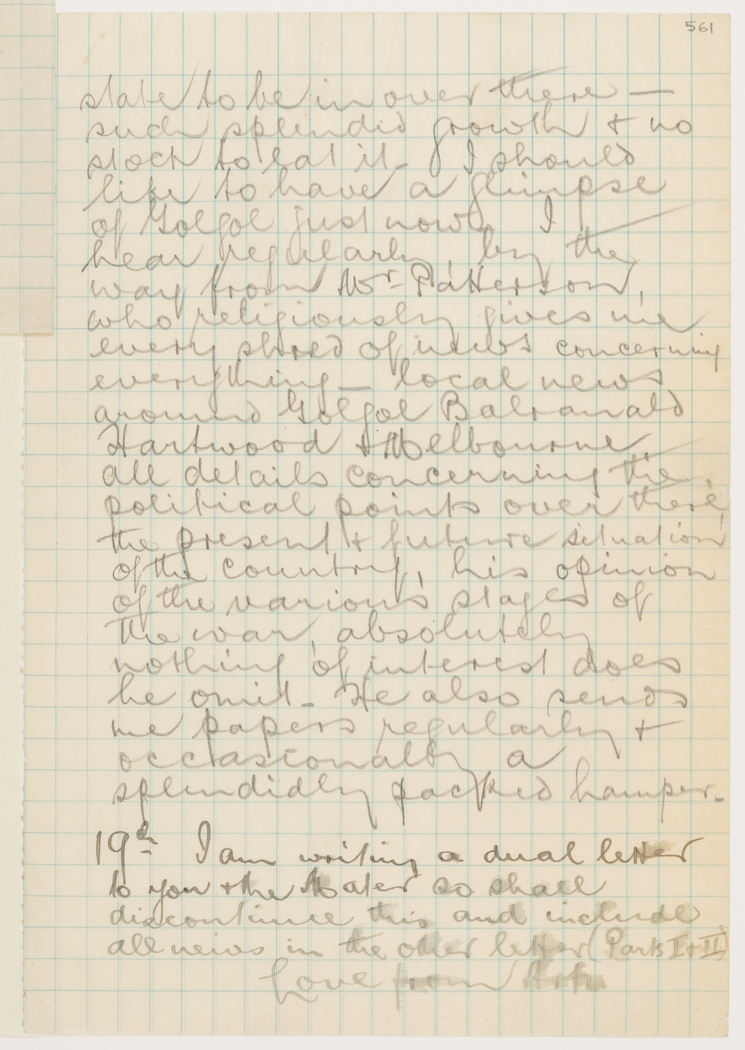 561
state to be in over there —
such splendid growth & no
stock to eat it - I should
like to have a glimpse
of Golgol just now. I
hear regularly, by the
way from Mr. Patterson,
who religiously gives me
every shred of news concerning
everything — local news
around Golgol Balranald
Hartwood & Melbourne
all details concerning the
political points over there,
the present & future situation
of the country, his opinion
of the various stages of
the war, absolutely
nothing of interest does
he omit - He also sends
me papers regularly &
occasionally a
splendidly packed hamper.
19th I am writing a dual letter
to you & the Mater so shall
discontinue this and include
all news in the other letter (Parts I & II)
Love from